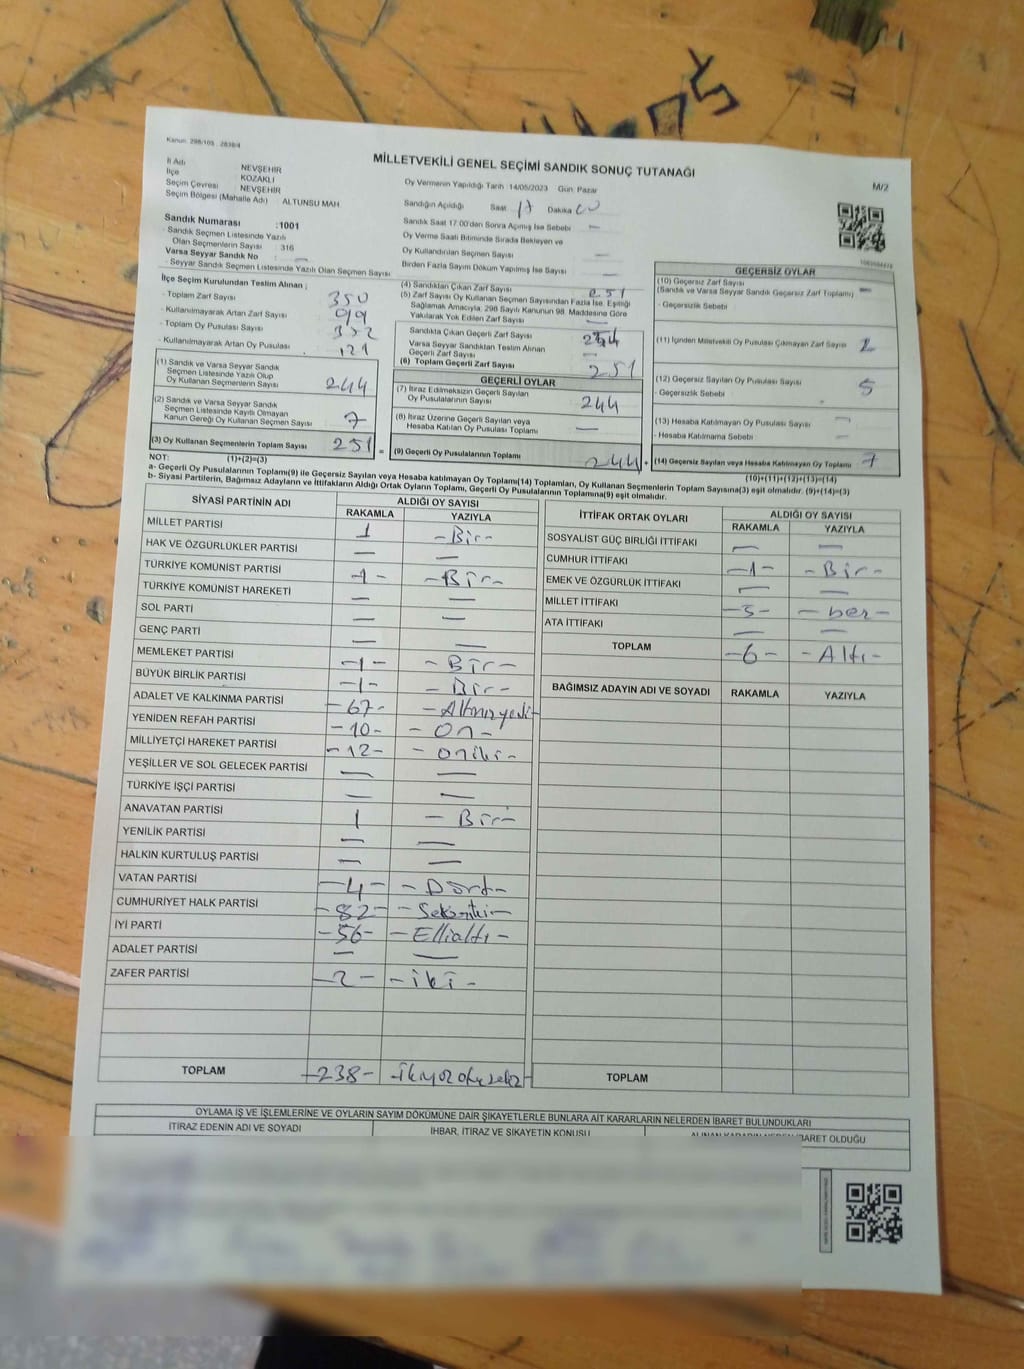 Kanun: 298/105 , 2839/4
MİLLETVEKİLİ GENEL SEÇİMİ SANDIK SONUÇ TUTANAĞI
M/2
İl Adı NEVŞEHİR
İlçe KOZAKLI
Seçim Çevresi NEVŞEHİR
Seçim Bölgesi (Mahalle Adı) ALTUNSU MAH
Sandık Numarası :1001
- Sandık Seçmen Listesinde Yazılı
Olan Seçmenlerin Sayısı : 316
Varsa Seyyar Sandık No : —
- Seyyar Sandık Seçmen Listesinde Yazılı Olan Seçmen Sayısı
Oy Vermenin Yapıldığı Tarih :14/05/2023 Gün: Pazar
Sandığın Açıldığı Saat 17 Dakika 00
Sandık Saat 17:00'dan Sonra Açılmış İse Sebebi —
Oy Verme Saati Bitiminde Sırada Bekleyen ve
Oy Kullandırılan Seçmen Sayısı —
Birden Fazla Sayım Döküm Yapılmış İse Sayısı —
İlçe Seçim Kurulundan Teslim Alınan ;
- Toplam Zarf Sayısı 350
- Kullanılmayarak Artan Zarf Sayısı 99
- Toplam Oy Pusulası Sayısı 372
- Kullanılmayarak Artan Oy Pusulası 121
(1) Sandık ve Varsa Seyyar Sandık
Seçmen Listesinde Yazılı Olup
Oy Kullanan Seçmenlerin Sayısı 244
(2) Sandık ve Varsa Seyyar Sandık
Seçmen Listesinde Kayıtlı Olmayan
Kanun Gereği Oy Kullanan Seçmen Sayısı 7
(3) Oy Kullanan Seçmenlerin Toplam Sayısı 251 =
(4) Sandıktan Çıkan Zarf Sayısı 251
(5) Zarf Sayısı Oy Kullanan Seçmen Sayısından Fazla İse, Eşitliği
Sağlamak Amacıyla; 298 Sayılı Kanunun 98. Maddesine Göre
Yakılarak Yok Edilen Zarf Sayısı —
Sandıkta Çıkan Geçerli Zarf Sayısı
Varsa Seyyar Sandıktan Teslim Alınan
Geçerli Zarf Sayısı —
(6) Toplam Geçerli Zarf Sayısı 251
GEÇERLİ OYLAR
(7) İtiraz Edilmeksizin Geçerli Sayılan
Oy Pusulalarının Sayısı 244
(8) İtiraz Üzerine Geçerli Sayılan veya
Hesaba Katılan Oy Pusulası Toplamı —
(9) Geçerli Oy Pusulalarının Toplamı 244 +
GEÇERSİZ OYLAR
(10) Geçersiz Zarf Sayısı
(Sandık ve Varsa Seyyar Sandık Geçersiz Zarf Toplamı) —
- Geçersizlik Sebebi :
(11) İçinden Milletvekili Oy Pusulası Çıkmayan Zarf Sayısı 2
(12) Geçersiz Sayılan Oy Pusulası Sayısı 5
- Geçersizlik Sebebi :
(13) Hesaba Katılmayan Oy Pusulası Sayısı —
- Hesaba Katılmama Sebebi : —
(14) Geçersiz Sayılan veya Hesaba Katılmayan Oy Toplamı 7
NOT: (1)+(2)=(3) (10)+(11)+(12)+(13)=(14)
a- Geçerli Oy Pusulalarının Toplamı(9) ile Geçersiz Sayılan veya Hesaba katılmayan Oy Toplamı(14) Toplamları, Oy Kullanan Seçmenlerin Toplam Sayısına(3) eşit olmalıdır. (9)+(14)=(3)
b- Siyasi Partilerin, Bağımsız Adayların ve İttifakların Aldığı Ortak Oyların Toplamı, Geçerli Oy Pusulalarının Toplamına(9) eşit olmalıdır.
SİYASİ PARTİNİN ADI ALDIĞI OY SAYISI
RAKAMLA YAZIYLA
MİLLET PARTİSİ 1 -Bir-
HAK VE ÖZGÜRLÜKLER PARTİSİ — —
TÜRKİYE KOMÜNİST PARTİSİ -1- -Bir-
TÜRKİYE KOMÜNİST HAREKETİ — —
SOL PARTİ — —
GENÇ PARTİ — —
MEMLEKET PARTİSİ -1- -Bir-
BÜYÜK BİRLİK PARTİSİ -1- -Bir-
ADALET VE KALKINMA PARTİSİ -67- -Altmışyedi-
YENİDEN REFAH PARTİSİ -10- -On-
MİLLİYETÇİ HAREKET PARTİSİ -12- -Oniki-
YEŞİLLER VE SOL GELECEK PARTİSİ — —
TÜRKİYE İŞÇİ PARTİSİ — —
ANAVATAN PARTİSİ 1 -Bir-
YENİLİK PARTİSİ — —
HALKIN KURTULUŞ PARTİSİ — —
VATAN PARTİSİ -4- -Dört-
CUMHURİYET HALK PARTİSİ -82- -Sekseniki-
İYİ PARTİ -56- -Ellialtı-
ADALET PARTİSİ — —
ZAFER PARTİSİ -2- -iki-
TOPLAM -238- -ikiyüzotuzsekiz-
İTTİFAK ORTAK OYLARI ALDIĞI OY SAYISI
RAKAMLA YAZIYLA
SOSYALİST GÜÇ BİRLİĞİ İTTİFAKI — —
CUMHUR İTTİFAKI -1- -Bir-
EMEK VE ÖZGÜRLÜK İTTİFAKI — —
MİLLET İTTİFAKI -5- -beş-
ATA İTTİFAKI — —
TOPLAM -6- -Altı-
BAĞIMSIZ ADAYIN ADI VE SOYADI RAKAMLA YAZIYLA
TOPLAM
OYLAMA İŞ VE İŞLEMLERİNE VE OYLARIN SAYIM DÖKÜMÜNE DAİR ŞİKAYETLERLE BUNLARA AİT KARARLARIN NELERDEN İBARET BULUNDUKLARI
İTİRAZ EDENİN ADI VE SOYADI İHBAR, İTİRAZ VE ŞİKAYETİN KONUSU ALINAN KARARIN NEDEN İBARET OLDUĞU